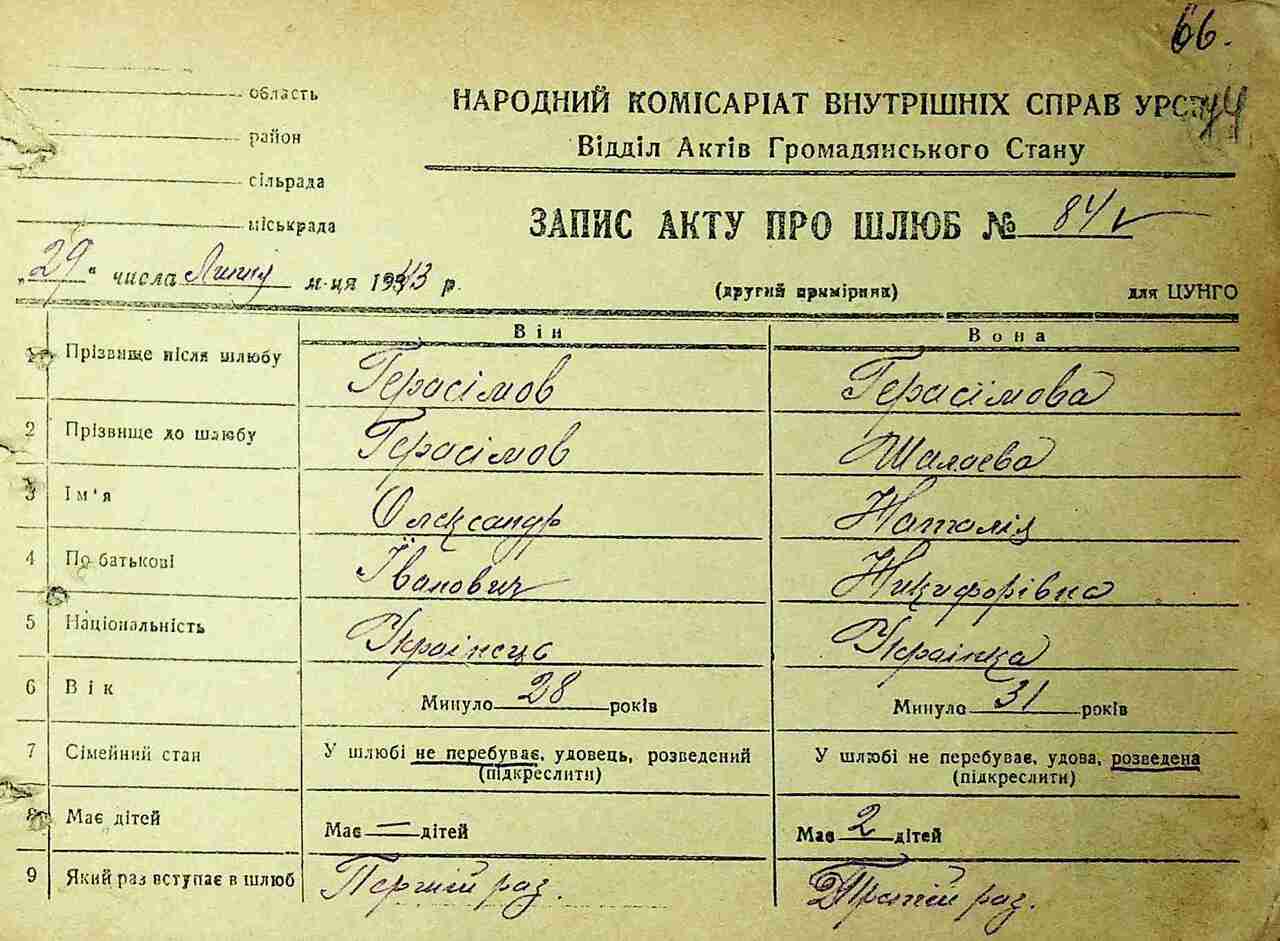 66.
44
область
район
сільрада
міськрада
НАРОДНИЙ КОМІСАРІАТ ВНУТРІШНІХ СПРАВ УРСР
Відділ Актів Громадянського Стану
ЗАПИС АКТУ ПРО ШЛЮБ № 84
„29“ числа Липня м-ця 1943 р.
(другий примірник) для ЦУНГО
Він Вона
1 Прізвище після шлюбу Герасімов Герасімова
2 Прізвище до шлюбу Герасімов Шалаєва
3 Ім'я Олександр Наталія
4 По батькові Іванович Никифорівна
5 Національність Українець Українка
6 Вік Минуло 28 років Минуло 31 років
7 Сімейний стан У шлюбі не перебуває, удовець, розведений У шлюбі не перебуває, удова, розведена
(підкреслити) (підкреслити)
8 Має дітей Має — дітей Має 2 дітей
9 Який раз вступає в шлюб Перший раз. Третій раз.